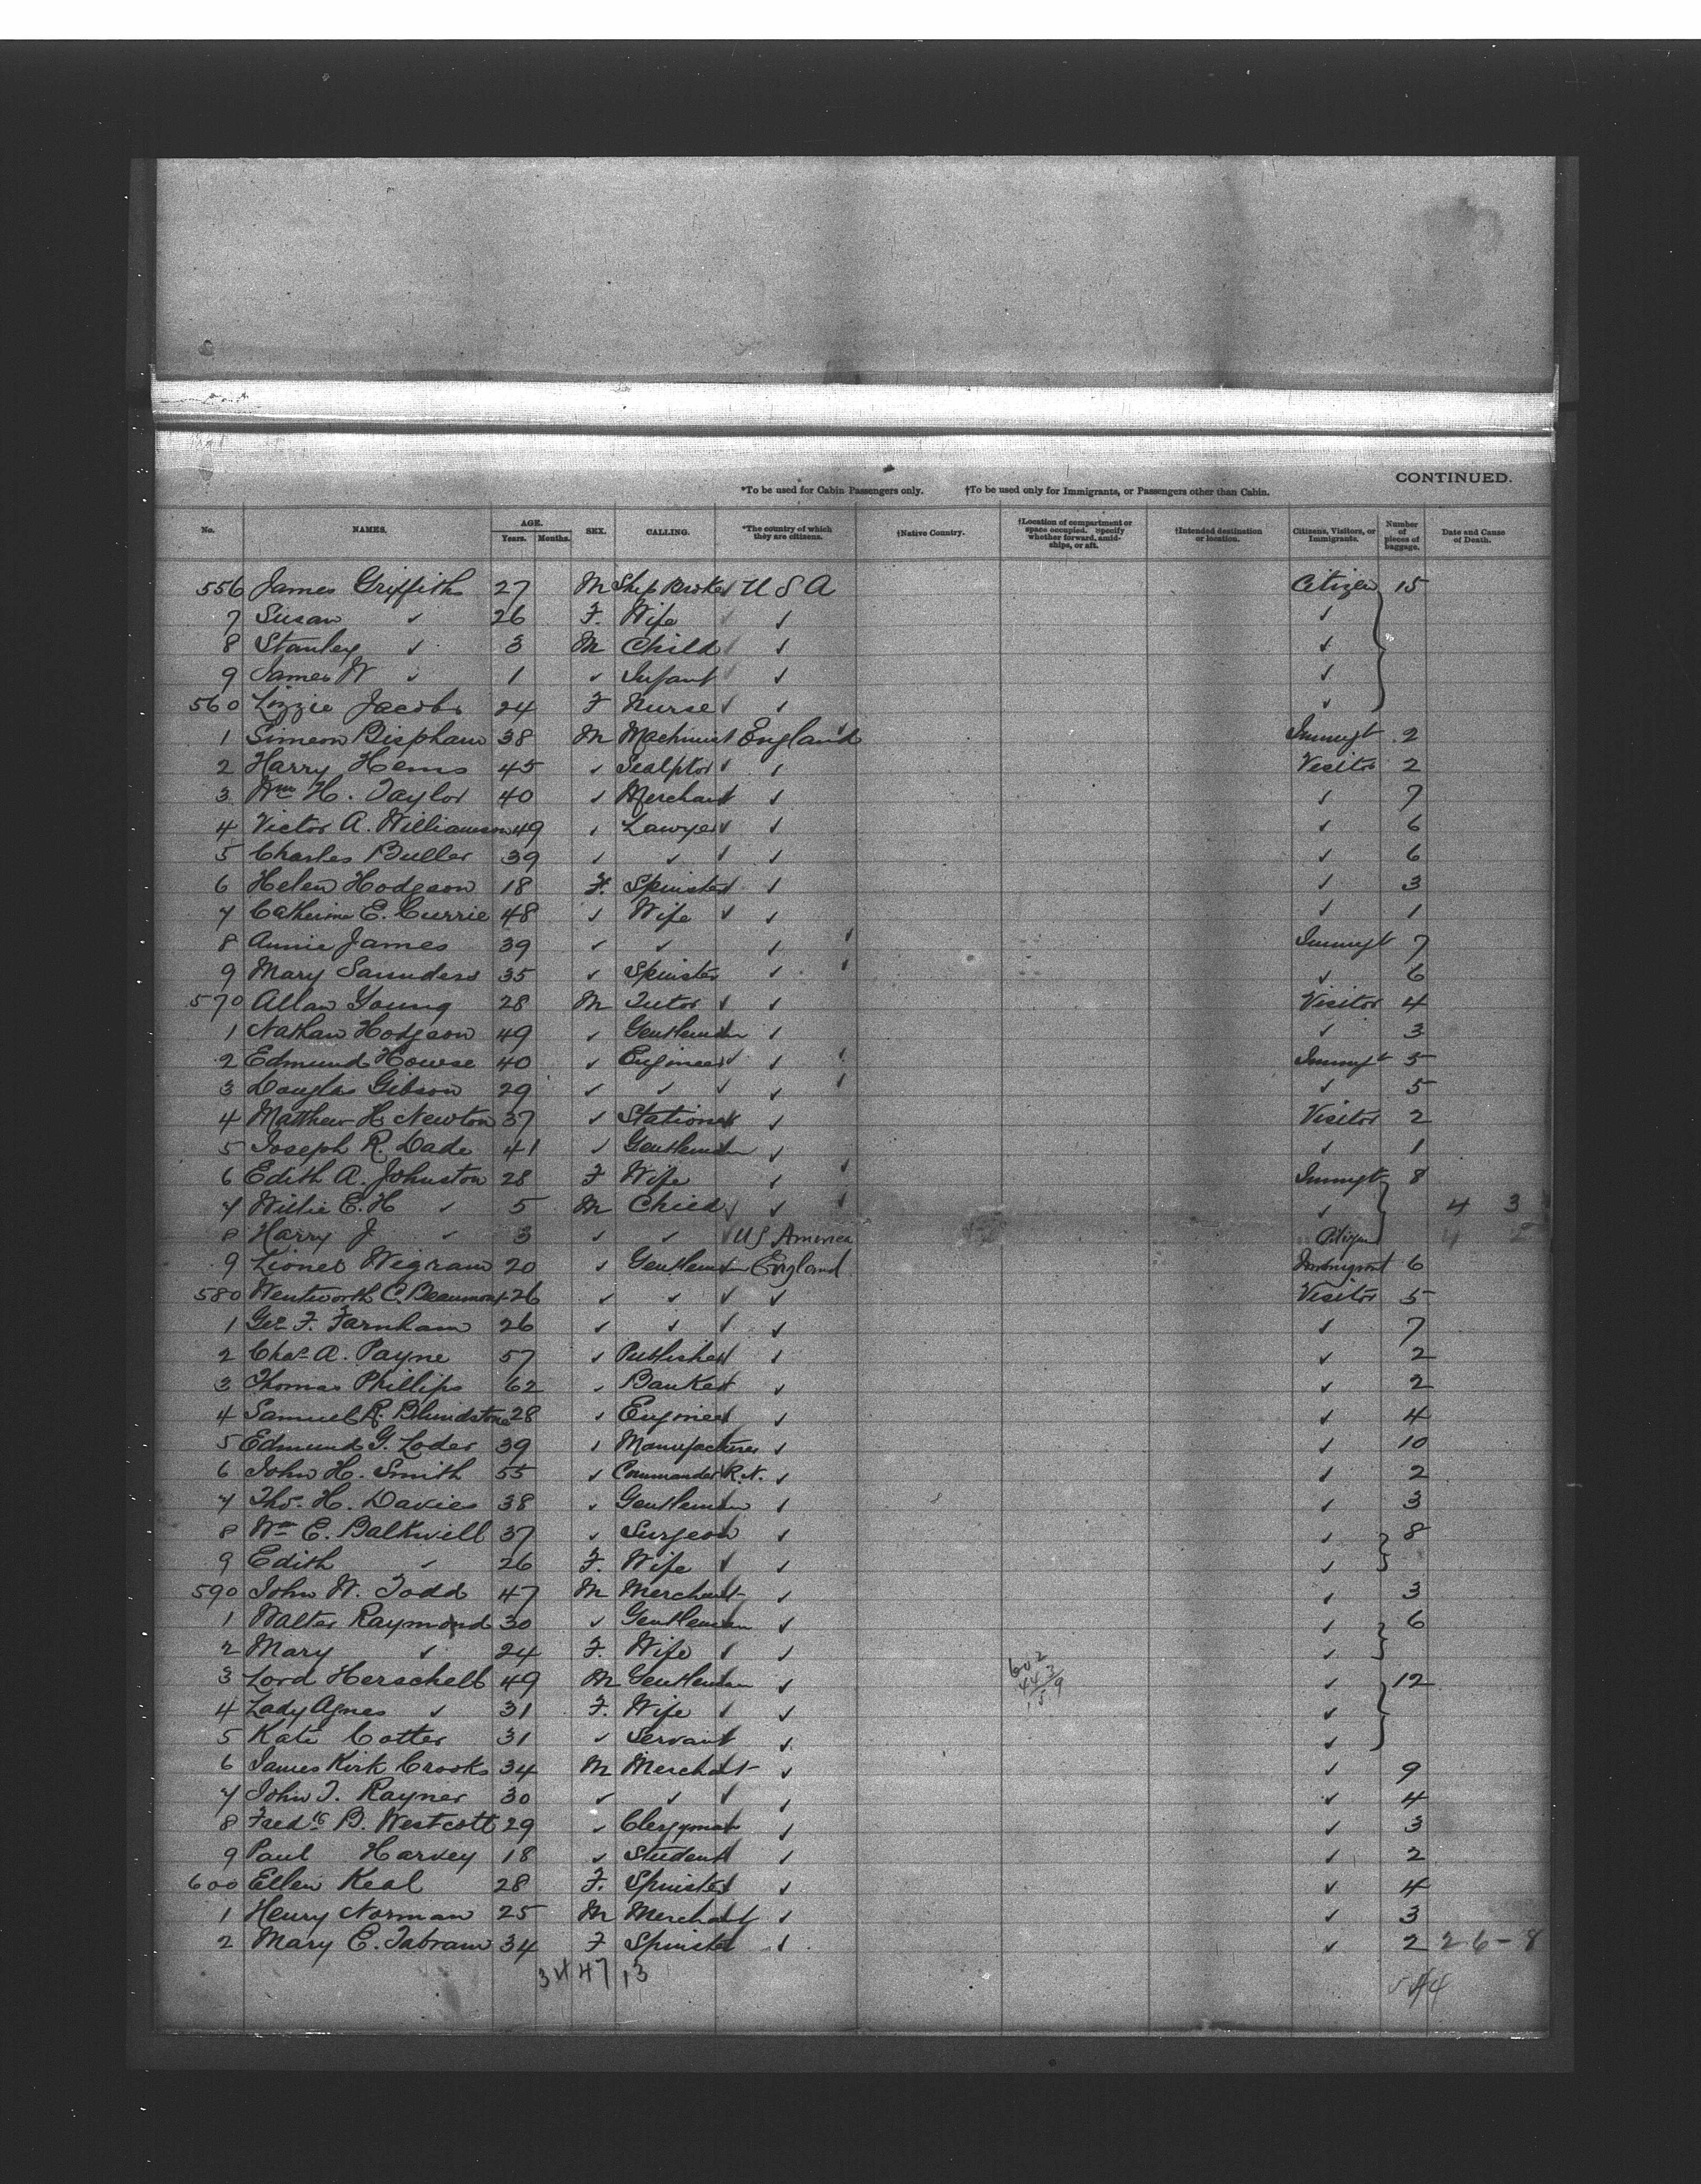 CONTINUED.
*To be used for Cabin Passengers only. †To be used only for Immigrants, or Passengers other than Cabin.
No. NAMES. AGE. Years. Months. SEX. CALLING. *The country of which they are citizens. †Native Country. †Location of compartment or space occupied. Specify whether forward, amidships, or aft. †Intended destination or location. Citizens, Visitors, or Immigrants. Number of pieces of baggage. Date and Cause of Death.
556 James Griffith 27 M Ship Broker U S A Citizen 15
7 Susan ✓ 26 F. Wife ✓ ✓
8 Stanley ✓ 3 M Child ✓ ✓
9 James W ✓ 1 ✓ Infant ✓ ✓
560 Lizzie Jacobs 24 F Nurse ✓ ✓ ✓
1 Simeon Bispham 38 M Machinist England Immgt 2
2 Harry Hems 45 ✓ Scalptor ✓ ✓ Visitor 2
3 Wm H. Taylor 40 ✓ Merchant ✓ ✓ 7
4 Victor A. Williamson 49 ✓ Lawyer ✓ ✓ ✓ 6
5 Charles Buller 39 ✓ ✓ ✓ ✓ ✓ 6
6 Helen Hodgson 18 F. Spinster ✓ ✓ 3
7 Catherine E. Currie 48 ✓ Wife ✓ ✓ ✓ 1
8 Annie James 39 ✓ ✓ ✓ Immgt 7
9 Mary Saunders 35 ✓ Spinster ✓ ✓ 6
570 Allan Young 28 M Tutor ✓ ✓ Visitor 4
1 Nathan Hodgson 49 ✓ Gentleman ✓ ✓ 3
2 Edmund Howse 40 ✓ Engineer ✓ ✓ Immgt 5
3 Douglas Gibson 29 ✓ ✓ ✓ ✓ ✓ 5
4 Matthew H. Newton 37 ✓ Stationer ✓ Visitor 2
5 Joseph R. Dade 41 ✓ Gentleman ✓ ✓ 1
6 Edith A. Johnston 28 F Wife ✓ Immgt 8
7 Willie E. H ✓ 5 M Child ✓ ✓ ✓ 4 3
8 Harry J ✓ 3 ✓ ✓ ✓ US America Citizen
9 Lionel Wigram 20 ✓ Gentleman England Immigrant 6
580 Wentworth C. Beaumont 26 ✓ ✓ ✓ ✓ Visitor 5
1 Geo F. Farnham 26 ✓ ✓ ✓ ✓ ✓ 7
2 Chas A. Payne 57 ✓ Publisher ✓ ✓ 2
3 Thomas Phillips 62 ✓ Banker ✓ ✓ 2
4 Samuel R. Blundstone 28 ✓ Engineer ✓ ✓ 4
5 Edmund G. Loder 39 ✓ Manufacturer ✓ ✓ 10
6 John H. Smith 55 ✓ Commander R.N. ✓ ✓ 2
7 Tho. H. Davies 38 ✓ Gentleman ✓ ✓ 3
8 Wm E. Balkwill 37 ✓ Surgeon ✓ ✓ 8
9 Edith ✓ 26 F. Wife ✓ ✓ ✓
590 John W. Todd 47 M Merchant ✓ ✓ 3
1 Walter Raymond 30 ✓ Gentleman ✓ ✓ 6
2 Mary ✓ 24 F. Wife ✓ ✓ ✓
3 Lord Herschell 49 M Gentleman ✓ ✓ 12
4 Lady Agnes ✓ 31 F. Wife ✓ ✓ ✓
5 Kate Cotter 31 ✓ Servant ✓ ✓
6 James Kirk Crooks 34 M Merchant ✓ ✓ 9
7 John T. Rayner 30 ✓ ✓ ✓ ✓ ✓ 4
8 Fredk B. Westcott 29 ✓ Clergyman ✓ ✓ 3
9 Paul Harvey 18 ✓ Student ✓ ✓ 2
600 Ellen Keal 28 F. Spinster ✓ ✓ 4
1 Henry Norman 25 M Merchant ✓ ✓ 3
2 Mary E. Tabram 34 F Spinster ✓ ✓ 2 26-8
34 47 13